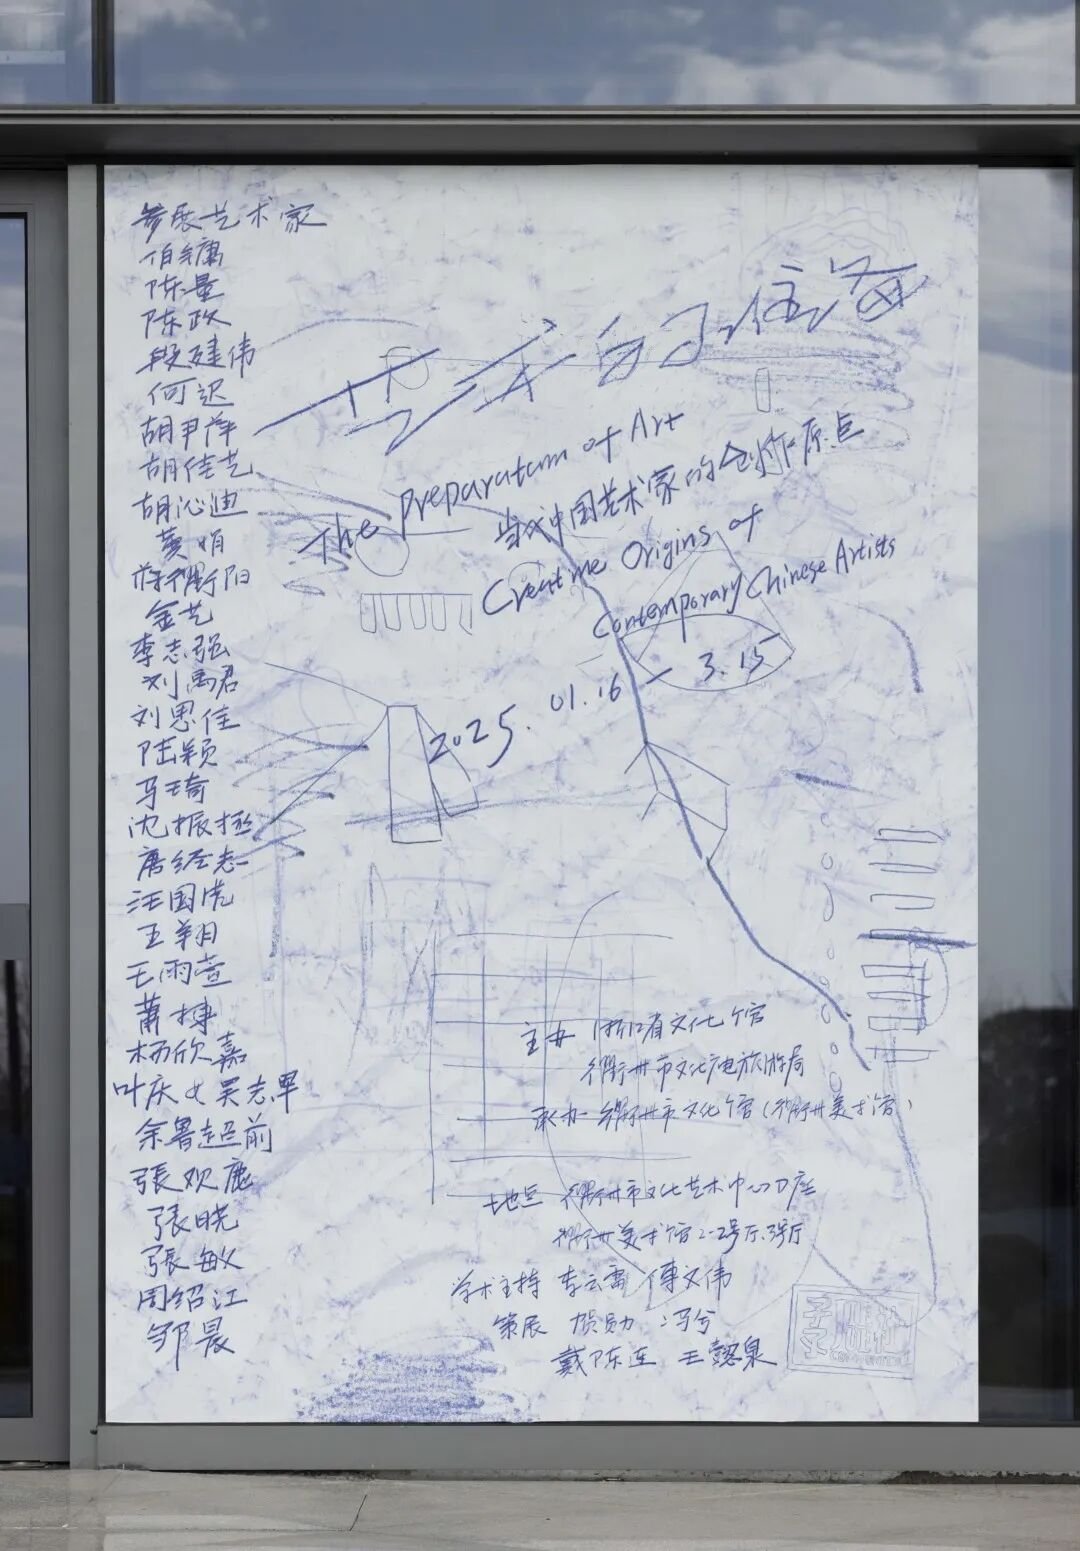 参展艺术家
陈量
陈政
段建伟
何迟
胡尹萍
胡佳艺
胡沁迪
黄娟
金艺
李志强
刘禹君
刘思佳
陆颖
马琦
沈振拯
唐经志
汪国虎
王翔
王雨萱
萧搏
杨欣嘉
叶庆 & 吴志军
張观鹿
張晓
張敏
周绍江
邹晨
艺术的准备
The Preparation of Art
当代中国艺术家的创作原点
Creative Origins of
Contemporary Chinese Artists
2025.01.16 — 3.15
主办 浙江省文化馆
衢州市文化广电旅游局
承办 衢州市文化馆(衢州美术馆)
地点 衢州市文化艺术中心D座
衢州美术馆1-2号厅、3号厅
学术主持 李云雷 傅文伟
策展 贺勋 冯兮
戴陈连 王懿泉